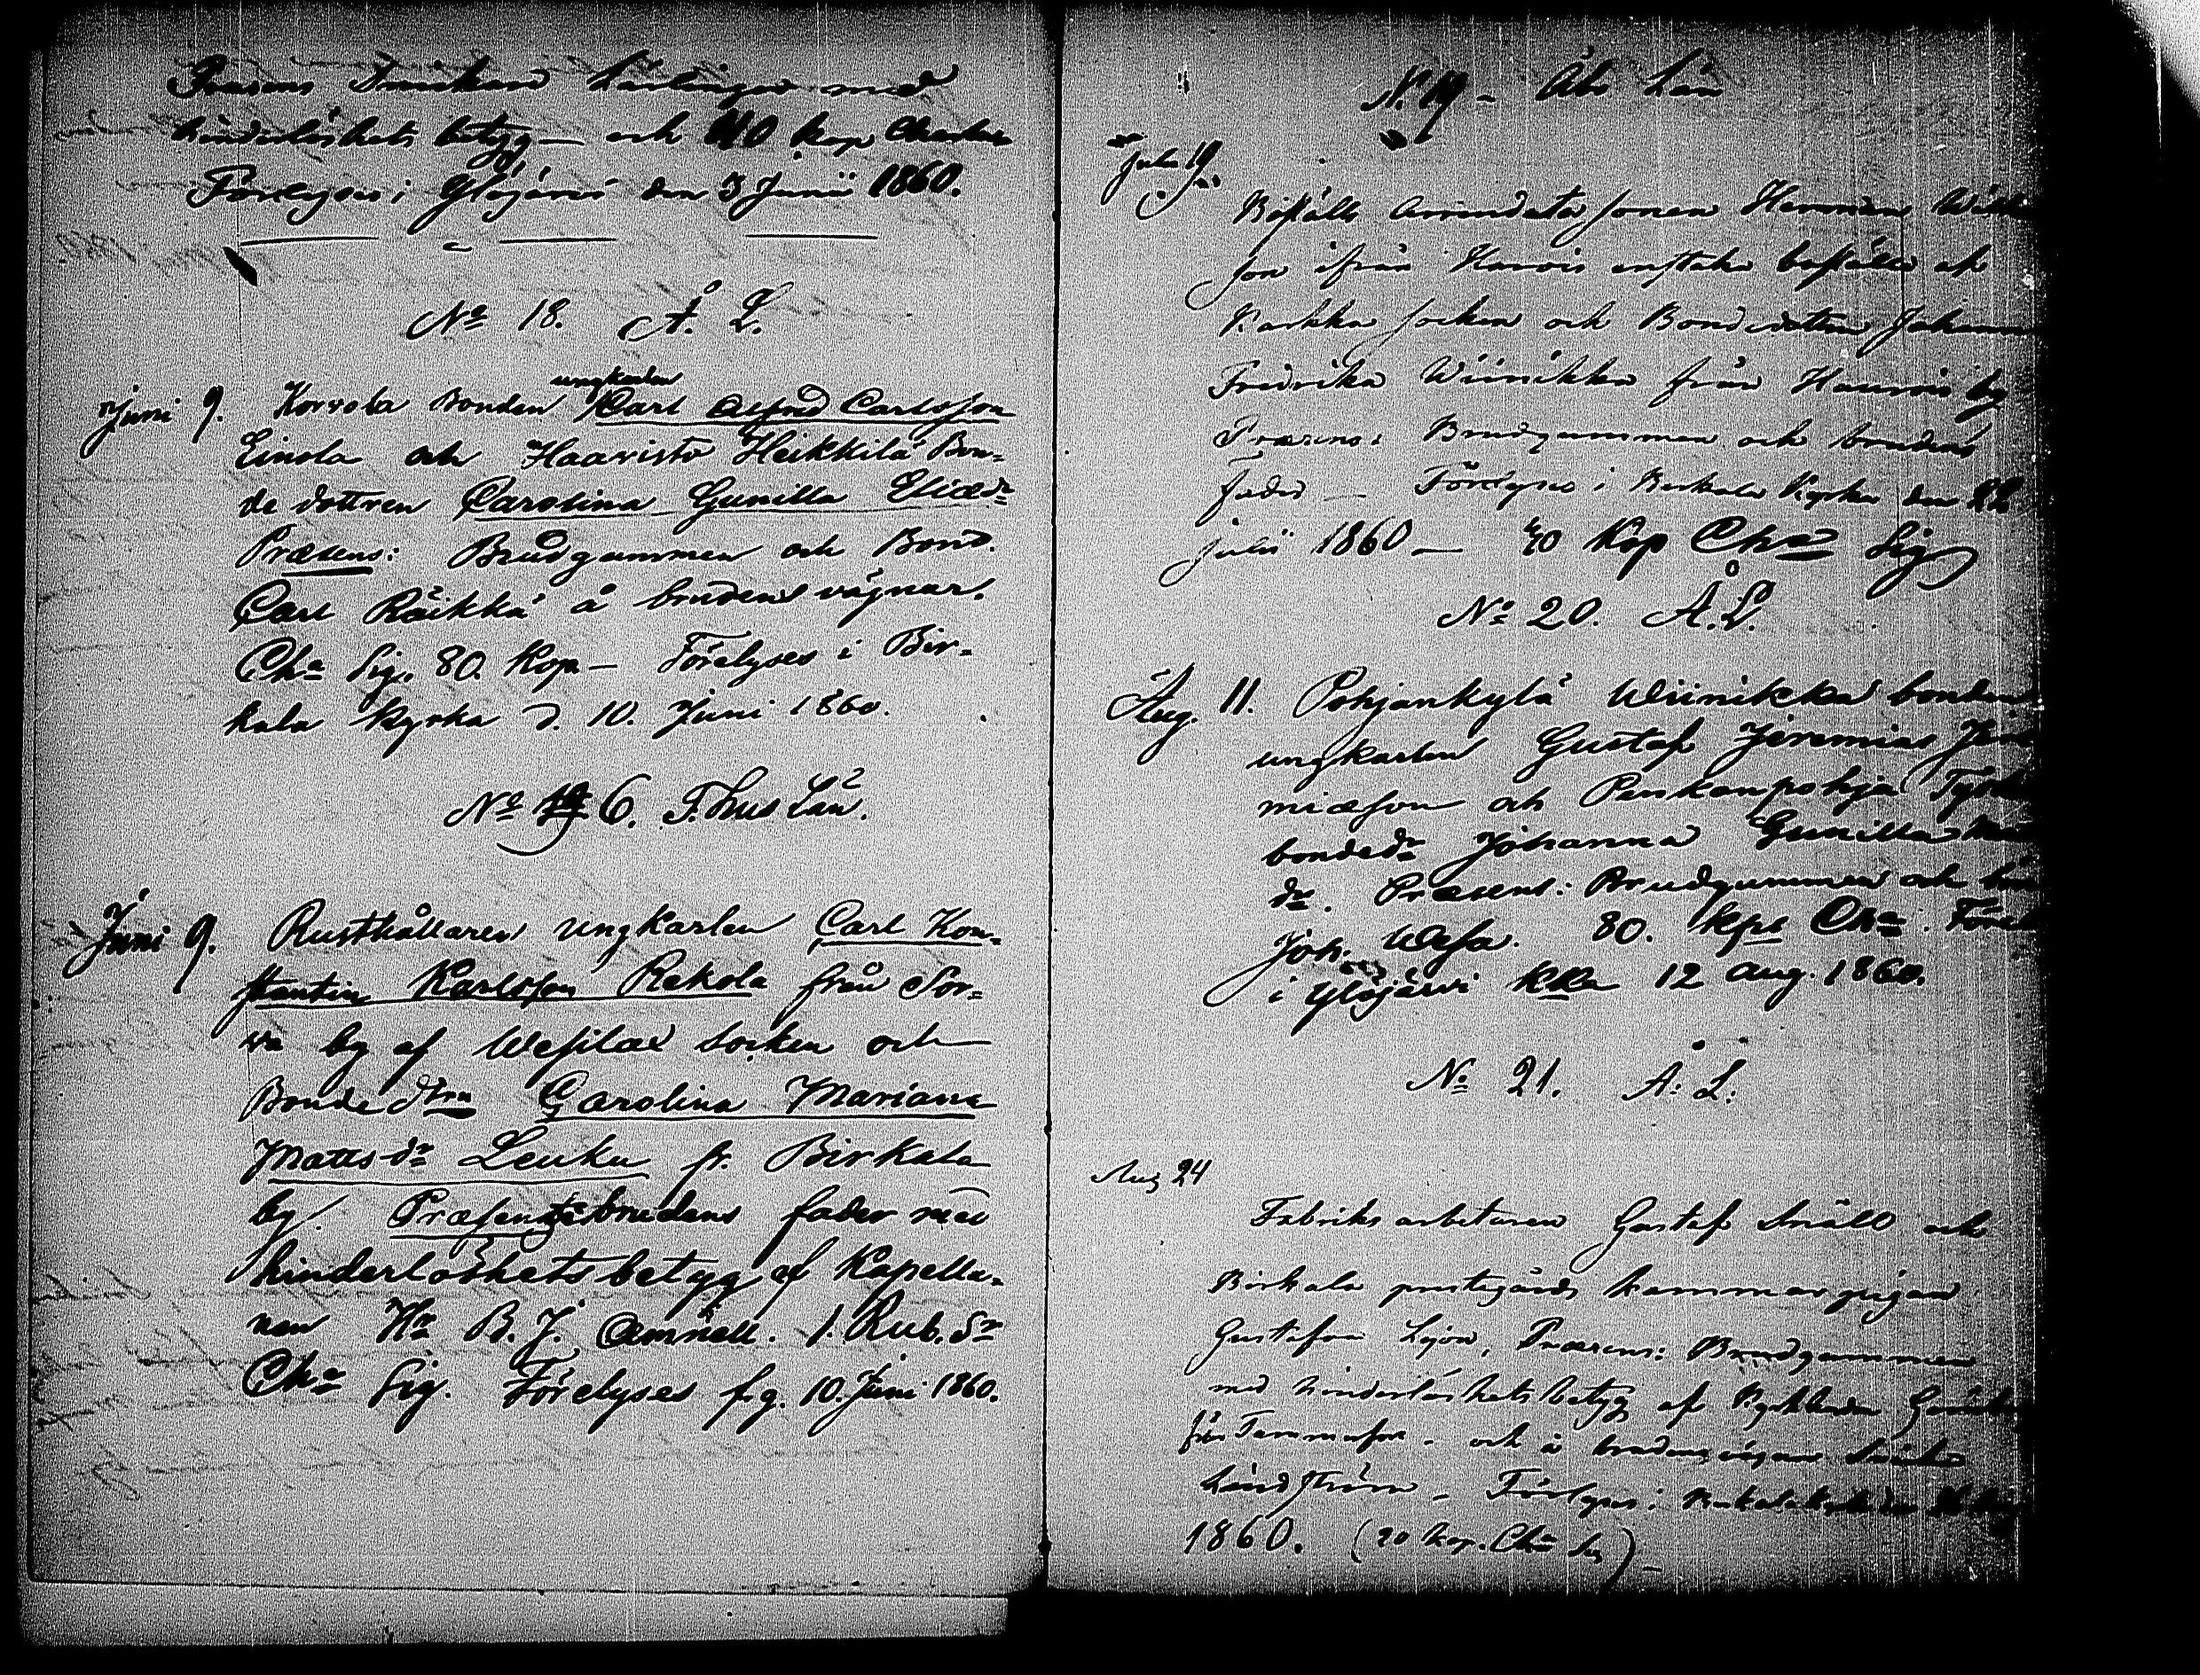 med
hinderlöshets betyg — och 40 kop Charta
Förelyses i Ylöjärvi den 3 Junii 1860.
No 18. Å. L.
ungkarlen
Juni 9. Korvola Bonden Carl Alfred Carlsson
Einola och Haavisto Heikkilä Bon-
de dottren Carolina Gunilla Eliædr
Præsens: Brudgummen och Bond.
Carl Räikkä å brudens vägnar.
Cha Sig. 80. Kop — Förelyses i Bir-
kala kyrka d. 10. Juni 1860.
No 6. T. hus Län.
Juni 9. Rusthållaren ungkarlen Carl Kon-
stantin Karlsson Rekola från Sor-
va by af Wesilax Socken och
Bonde dtrn Carolina Mariana
Matts dr Leuku fr. Birkala
by. Præsens brudens fader med
hinderlöshetsbetyg af Kapella-
nen Hr B. J. Amnell. 1. Rub. Sr
Cha Sig. Förelyses f. g. 10. Juni 1860.
No 19 - Åbo Län
Julii 19.
Boställs Arrendator sonen Herman
son ifrån enstaka boställe af
Karkku socken och Bondedottren Johanna
Fredrika Wiinikka från by
Præsens: Brudgummen och brudens
fader — Förelyses i Birkala Kyrka den 22
Julii 1860 — 40 Kop Cha Sig
No 20. Å. L.
Aug. 11. Pohjankylä Wiinikka bonden
ungkarlen Gustaf Jeremias Jere
miæson och
bondedr Johanna Gunilla
dr. Præsens: Brudgummen och
Joh. Wesa. 80. kps Cha. Förel
i Ylöjärvi kka 12 Aug. 1860.
No 21. Å. L.
Aug 24
Fabriks arbetaren Gustaf Snäll och
Birkala prestgårds kammar pigan
Gustafva Præsens: Brudgummen
med hinderlöshets betyg af
från Tammerfors. och å brudens vägnar
Lindström - Förelyses i
1860. (40 kop. Cha Sig) —